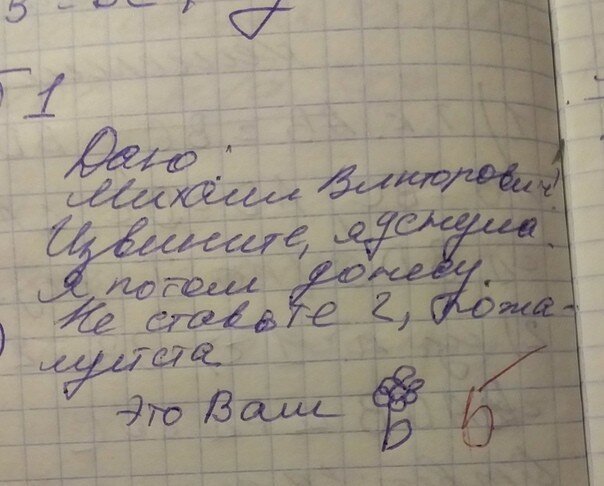 1
Дано:
Михаил Викторович!
Извините, я уснула.
Я потом донесу.
Не ставьте 2, пожа-
луйста
Это Вам
Б